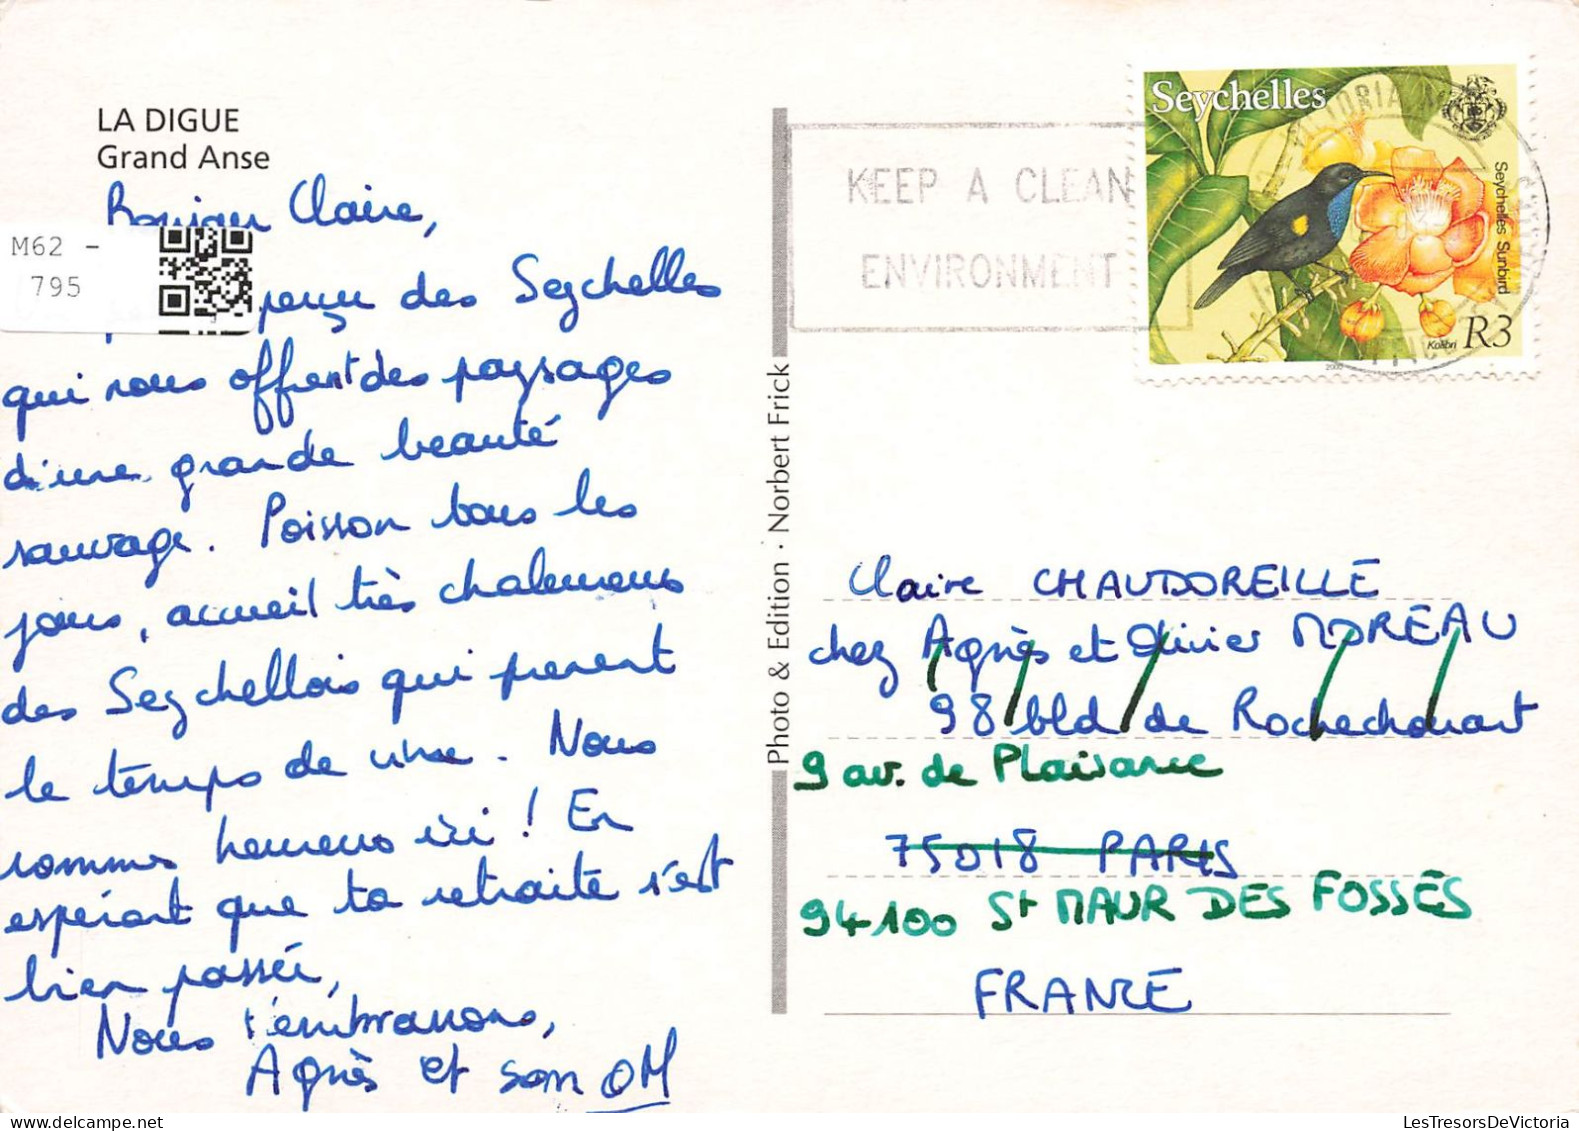 LA DIGUE
Grand Anse
Bonjour Claire,
M62 -
795
perçu des Seychelles
qui nous offrent des paysages
d'une grande beauté
sauvage. Poisson tous les
jours, accueil très chaleureux
des Seychellois qui prenent
le temps de vivre. Nous
sommes heureux ici ! En
espérant que ta retraite s'est
bien passée,
Nous t'embrassons,
Agnès et son OM
Photo & Edition · Norbert Frick
KEEP A CLEAN
ENVIRONMENT
Seychelles
Seychelles Sunbird
Kolibri R3
2000
Claire CHAUDOREILLE
chez Agnès et Olivier MOREAU
98 bld de Rochechouart
9 av. de Plaisance
75018 PARIS
94100 St MAUR DES FOSSÉS
FRANCE
LesTresorsDeVictoria.com